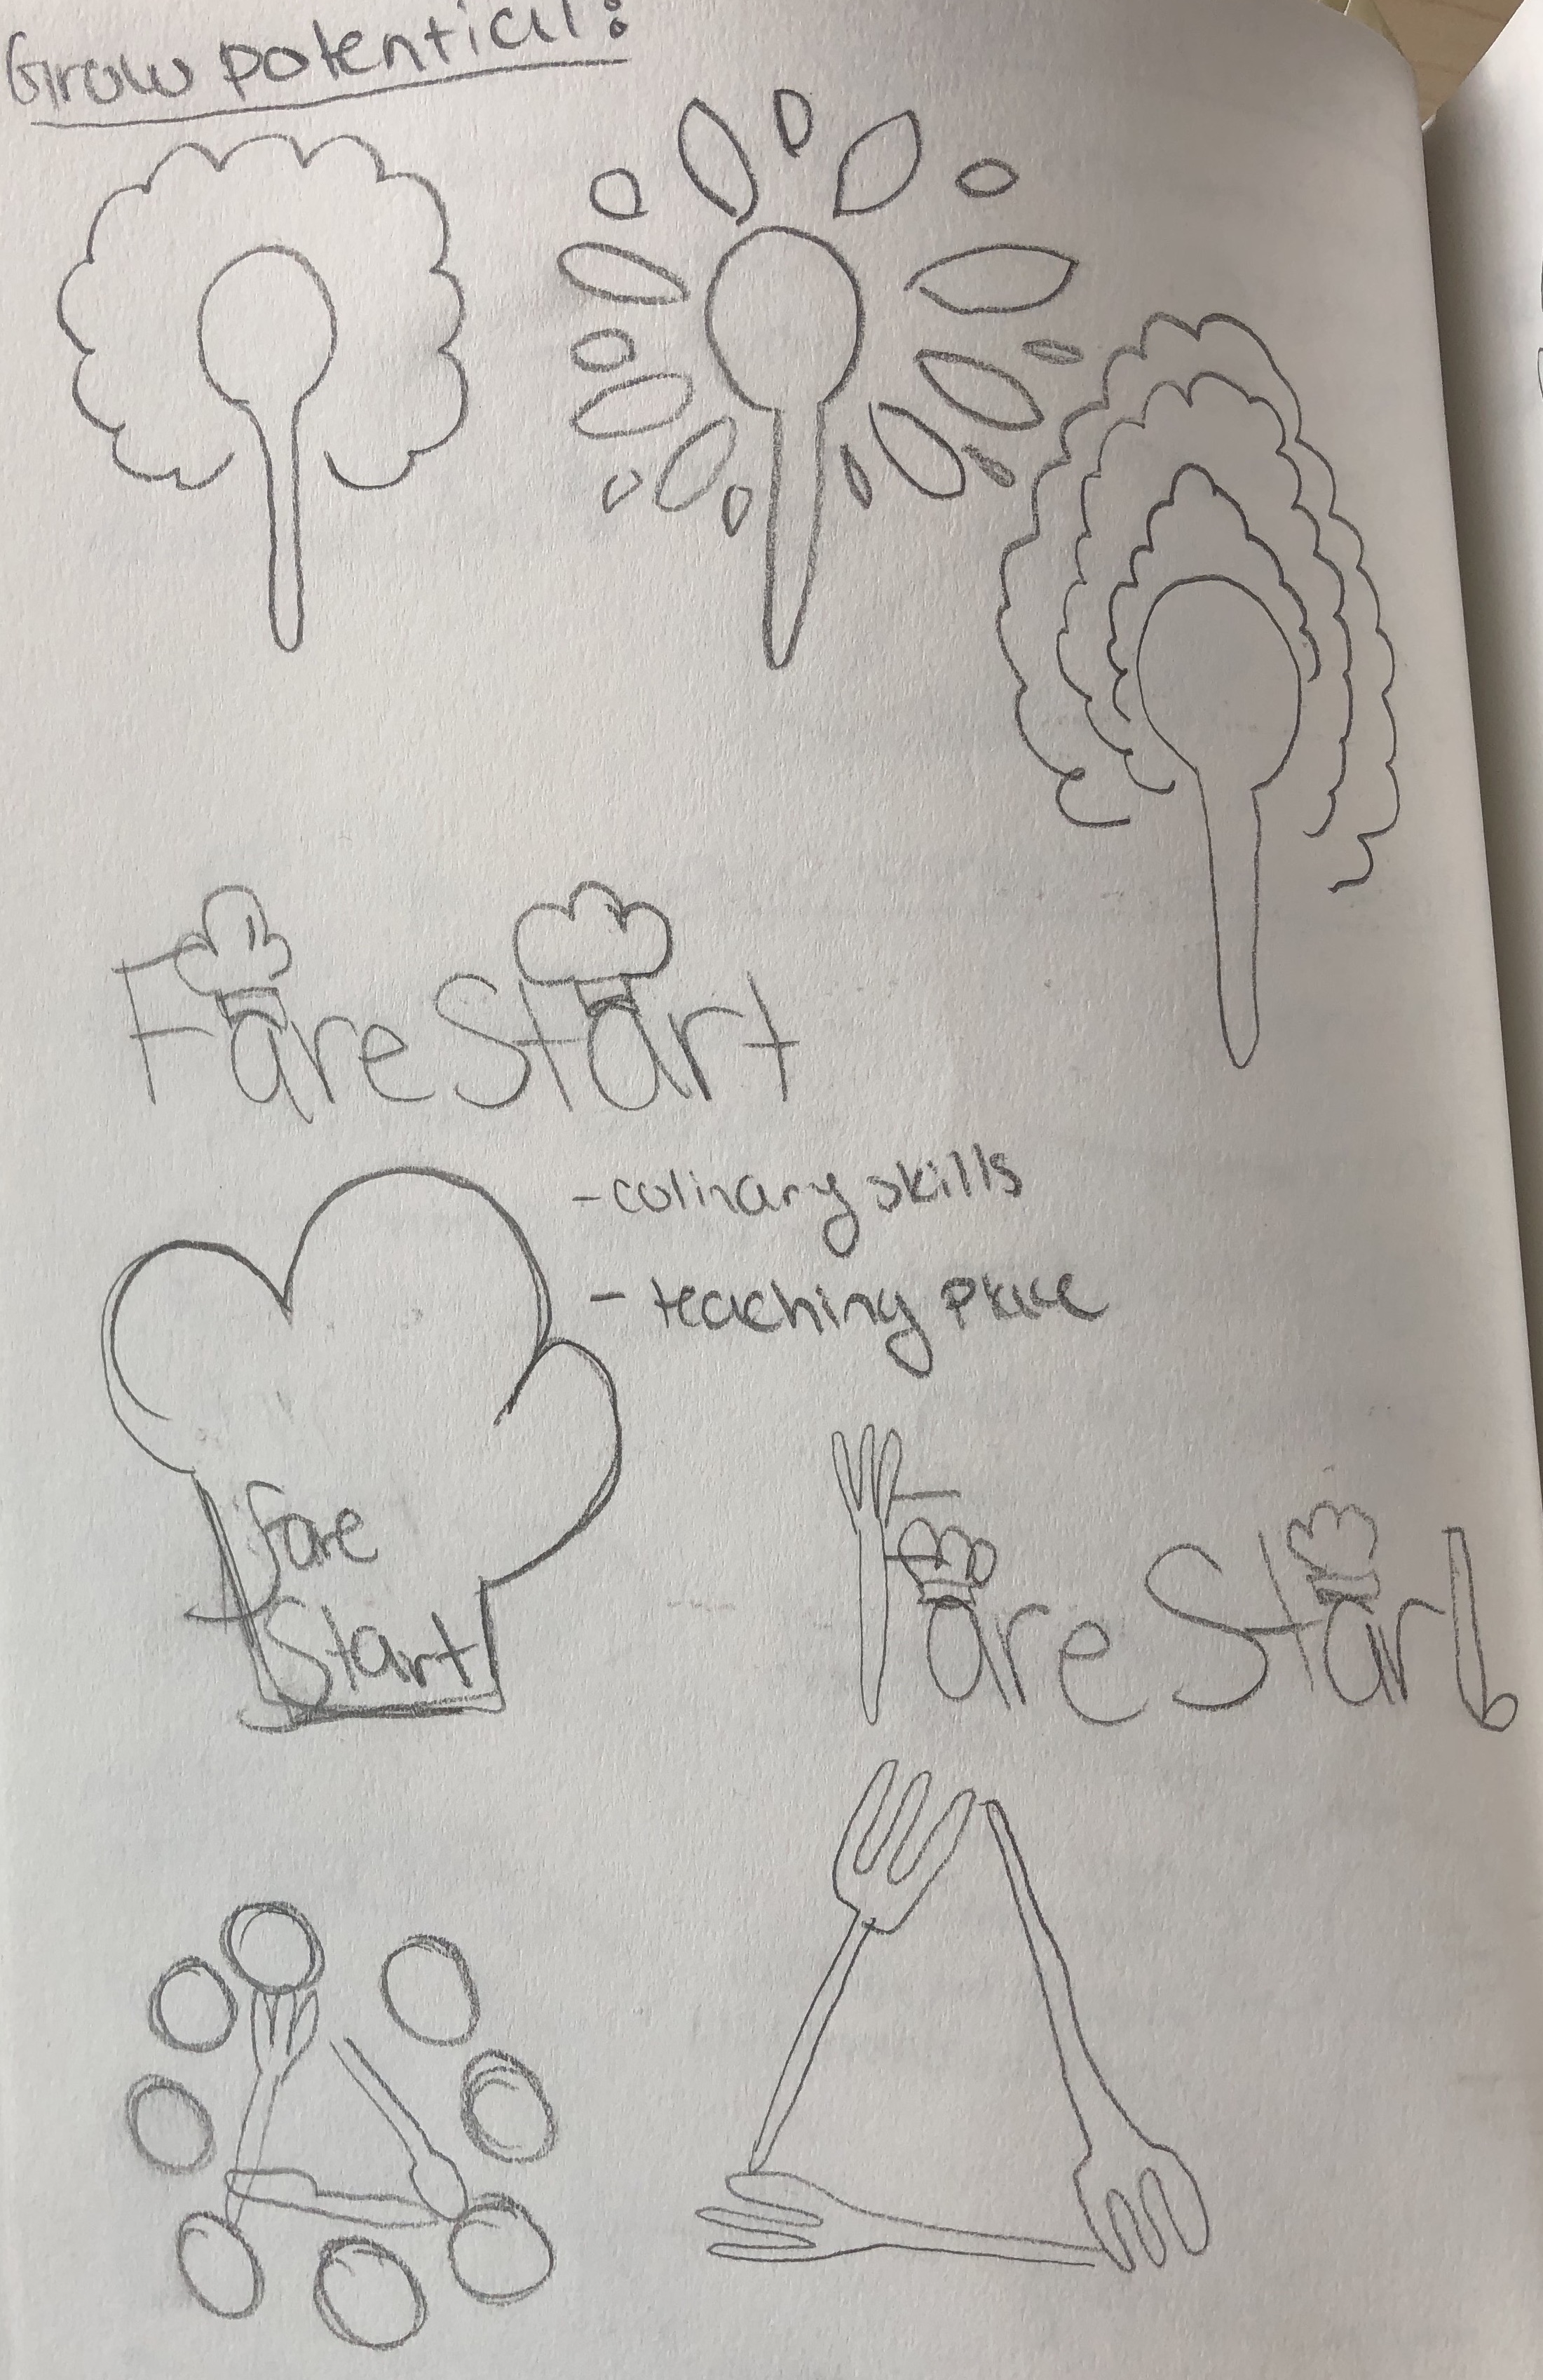 Grow potential:
FareStart
-culinary skills
- teaching place
Fare
Start
FareStart